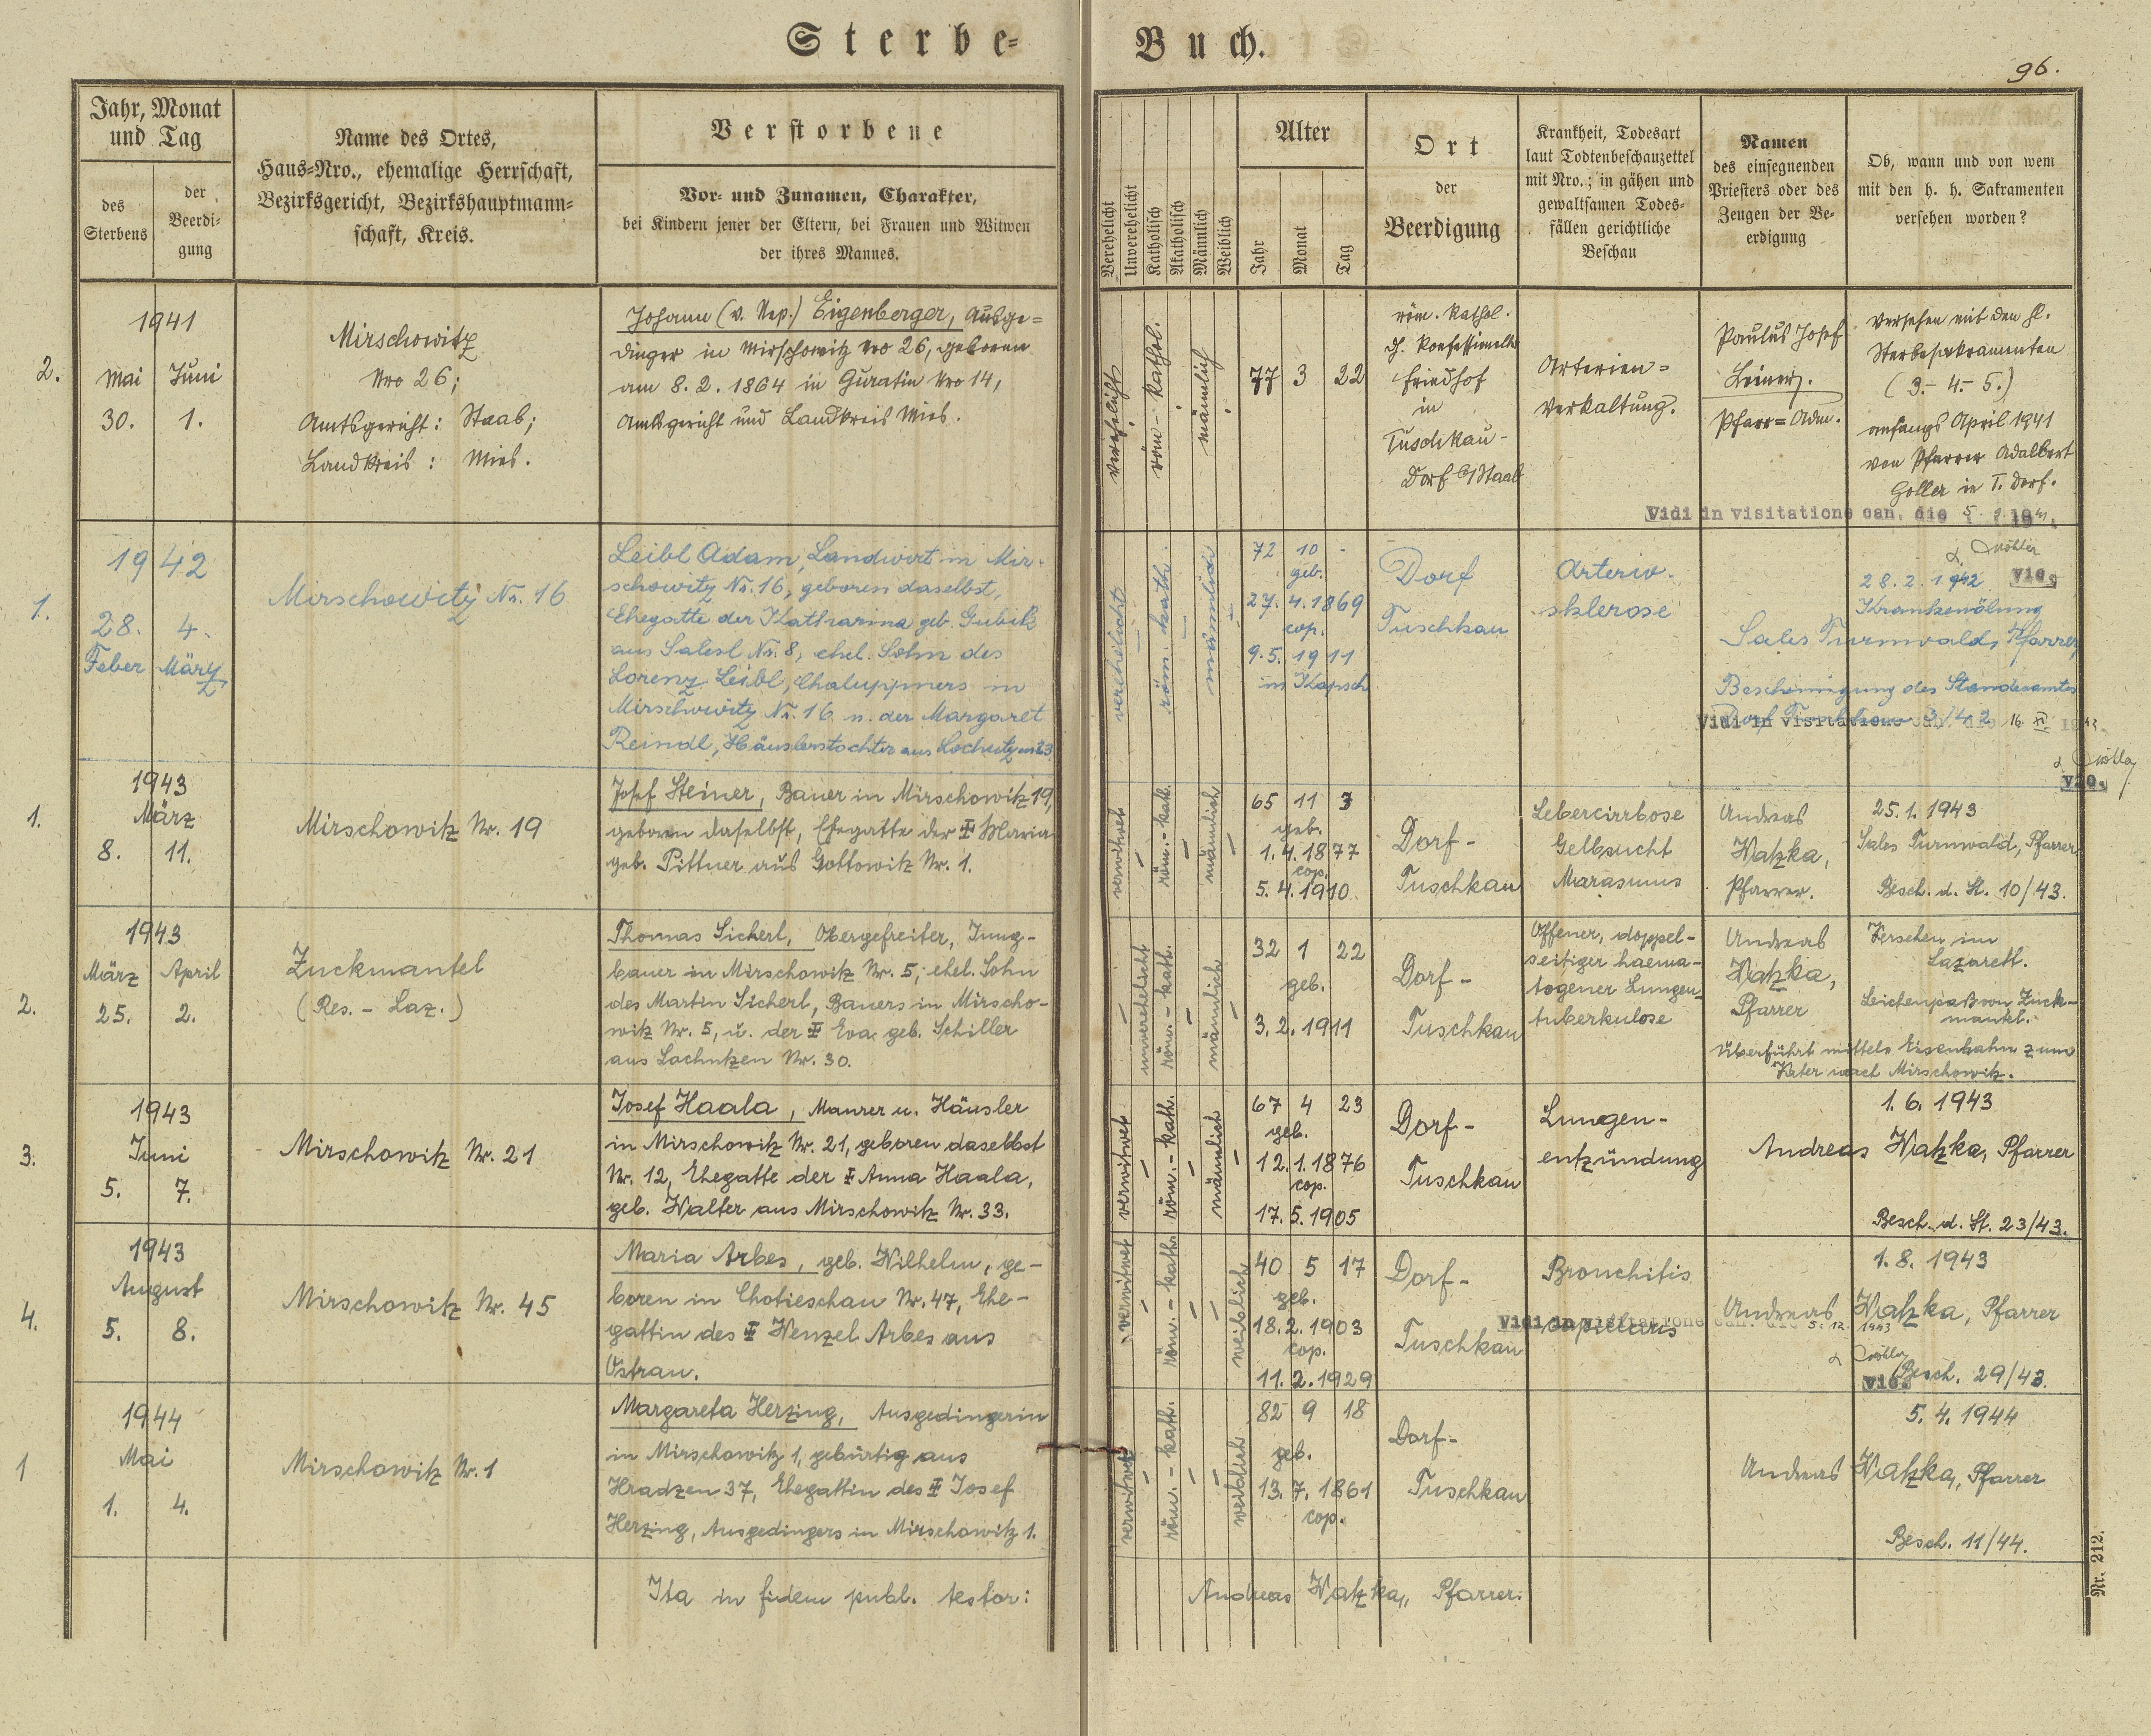 Sterbe-
Buch.
96.
Jahr, Monat
und Tag
des
Sterbens
der
Beerdi-
gung
Name des Ortes,
Haus-Nro., ehemalige Herrschaft,
Bezirksgericht, Bezirkshauptmann-
schaft, Kreis.
Verstorbene
Vor- und Zunamen, Charakter,
bei Kindern jener der Eltern, bei Frauen und Witwen
der ihres Mannes.
Verehelicht
Unverehelicht
Katholisch
Akatholisch
Männlich
Weiblich
Alter
Jahr
Monat
Tag
Ort
der
Beerdigung
Krankheit, Todesart
laut Todtenbeschauzettel
mit Nro.; in gähen und
gewaltsamen Todes-
fällen gerichtliche
Beschau
Namen
des einsegnenden
Priesters oder des
Zeugen der Be-
erdigung
Ob, wann und von wem
mit den h. h. Sakramenten
versehen worden?
2.
1941
Mai Juni
30. 1.
Mirschowitz
Nro 26;
Amtsgericht: Staab;
Landkreis: Mies.
Johann (v. Nep.) Eigenberger, Ausge-
dinger in Mirschowitz Nro 26, geboren
am 8. 2. 1864 in Guratin Nro 14,
Amtsgericht und Landkreis Mies.
verehelicht
röm-kathol.
männlich
77 3 22
röm. kathol.
Friedhof
in
Tuschkau-
Dorf
Arterien-
Verkaltung.
Paulus Josef
Pfarr-Adm.
Versehen mit den hl.
Sterbesakramenten
(3.- 4.- 5.)
anfangs April 1941
von Pfarrer Adalbert
Goller in T. Dorf.
Vidi in visitatione can. die
1.
1942
28. 4.
Feber März
Mirschowitz Nr. 16
Leibl Adam, Landwirt in Mir-
schowitz Nr. 16, geboren daselbst,
Ehegatte der Katharina geb. Gubik
aus Salesl Nr. 8, ehel. Sohn des
Lorenz Leibl, Chaluppners in
Mirschowitz Nr. 16 u. der Margaret
Reindl, Häuslerstochter aus
verehelicht
röm. kath.
männlich
72 10 -
geb.
27. 4. 1869
cop.
9. 5. 1911
in Kapsch
Dorf
Tuschkau
Arterio-
sklerose
28. 2. 1942
vic.
Krankenölung
Sales Turnwald, Pfarrer
Bescheinigung des Standesamtes
Dorf Tuschkau 3/42
Vidi in visitatione can. die 16.
vic.
1.
1943
März
8. 11.
Mirschowitz Nr. 19
Josef Steiner, Bauer in Mirschowitz 19,
geboren daselbst, Ehegatte der ‡ Maria
geb. Pittner aus Gottowitz Nr. 1.
verwitwet
röm.-kath.
männlich
65 11 7
geb.
1. 4. 1877
cop.
5. 4. 1910
Dorf-
Tuschkau
Lebercirrhose
Gelbsucht
Marasmus
Andreas
Watzka,
Pfarrer.
25. 1. 1943
Sales Turnwald, Pfarrer
Besch. d. St. 10/43.
2.
1943
März April
25. 2.
Zuckmantel
(Res. - Laz.)
Thomas Sicherl, Obergefreiter, Jung-
bauer in Mirschowitz Nr. 5, ehel. Sohn
des Martin Sicherl, Bauers in Mirscho-
witz Nr. 5, u. der ‡ Eva geb. Schiller
aus Lochutzen Nr. 30.
unverehelicht
röm.-kath.
männlich
32 1 22
geb.
3. 2. 1911
Dorf-
Tuschkau
Offener, doppel-
seitiger haema-
togener Lungen-
tuberkulose
Andreas
Watzka,
Pfarrer
Versehen im
Lazarett.
Leichenpaß von Zuck-
mantl.
Überführt mittels Eisenbahn zum
Vater nach Mirschowitz.
3.
1943
Juni
5. 7.
Mirschowitz Nr. 21
Josef Haala, Maurer u. Häusler
in Mirschowitz Nr. 21, geboren daselbst
Nr. 12, Ehegatte der ‡ Anna Haala,
geb. Walter aus Mirschowitz Nr. 33.
verwitwet
röm.-kath.
männlich
67 4 23
geb.
12. 1. 1876
cop.
17. 5. 1905
Dorf-
Tuschkau
Lungen-
entzündung
1. 6. 1943
Andreas Watzka, Pfarrer
Besch. d. St. 23/43.
4.
1943
August
5. 8.
Mirschowitz Nr. 45
Maria Arbes, geb. Wilhelm, ge-
boren in Chotieschau Nr. 47, Ehe-
gattin des ‡ Wenzel Arbes aus
Ostrau.
verwitwet
röm.-kath.
weiblich
40 5 17
geb.
18. 2. 1903
cop.
11. 2. 1929
Dorf-
Tuschkau
Bronchitis
capillaris
1. 8. 1943
Andreas Watzka, Pfarrer
Vidi in visitatione can. die 5. 12. 1943
vic.
Besch. 29/43.
1
1944
Mai
1. 4.
Mirschowitz Nr. 1
Margareta Herzing, Ausgedingerin
in Mirschowitz 1, gebürtig aus
Hradzen 37, Ehegattin des ‡ Josef
Herzing, Ausgedingers in Mirschowitz 1.
verwitwet
röm.-kath.
weiblich
82 9 18
geb.
13. 7. 1861
cop.
Dorf-
Tuschkau
5. 4. 1944
Andreas Watzka, Pfarrer
Besch. 11/44.
Ita in fidem publ. testor:
Andreas Watzka, Pfarrer.
Nr. 212.